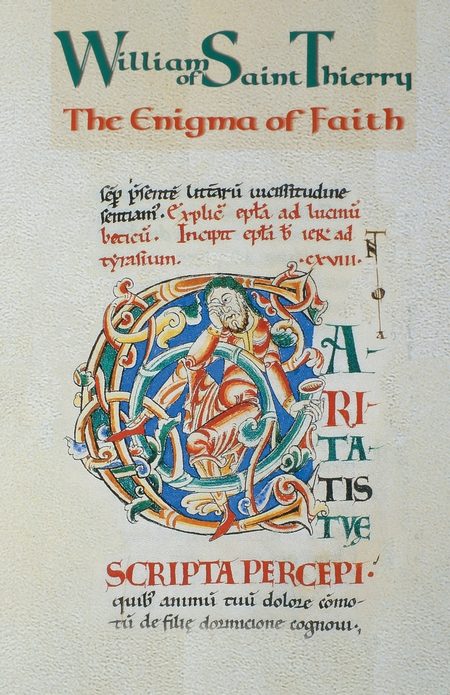 William of Saint Thierry
The Enigma of Faith
sēp p̄sentē litt̄arū uicissitudine
sentiam'. Explic̄ epl̄a ad lucinū
beticū. Incipit epl̄a b̄ ier̄ ad
tyrasium. ·cxviii·
CA-
RI-
TA-
TIS
TVE
SCRIPTA PERCEPI·
quib' animū tuū dolore cōmo-
tū de filię dormicione cognoui.,